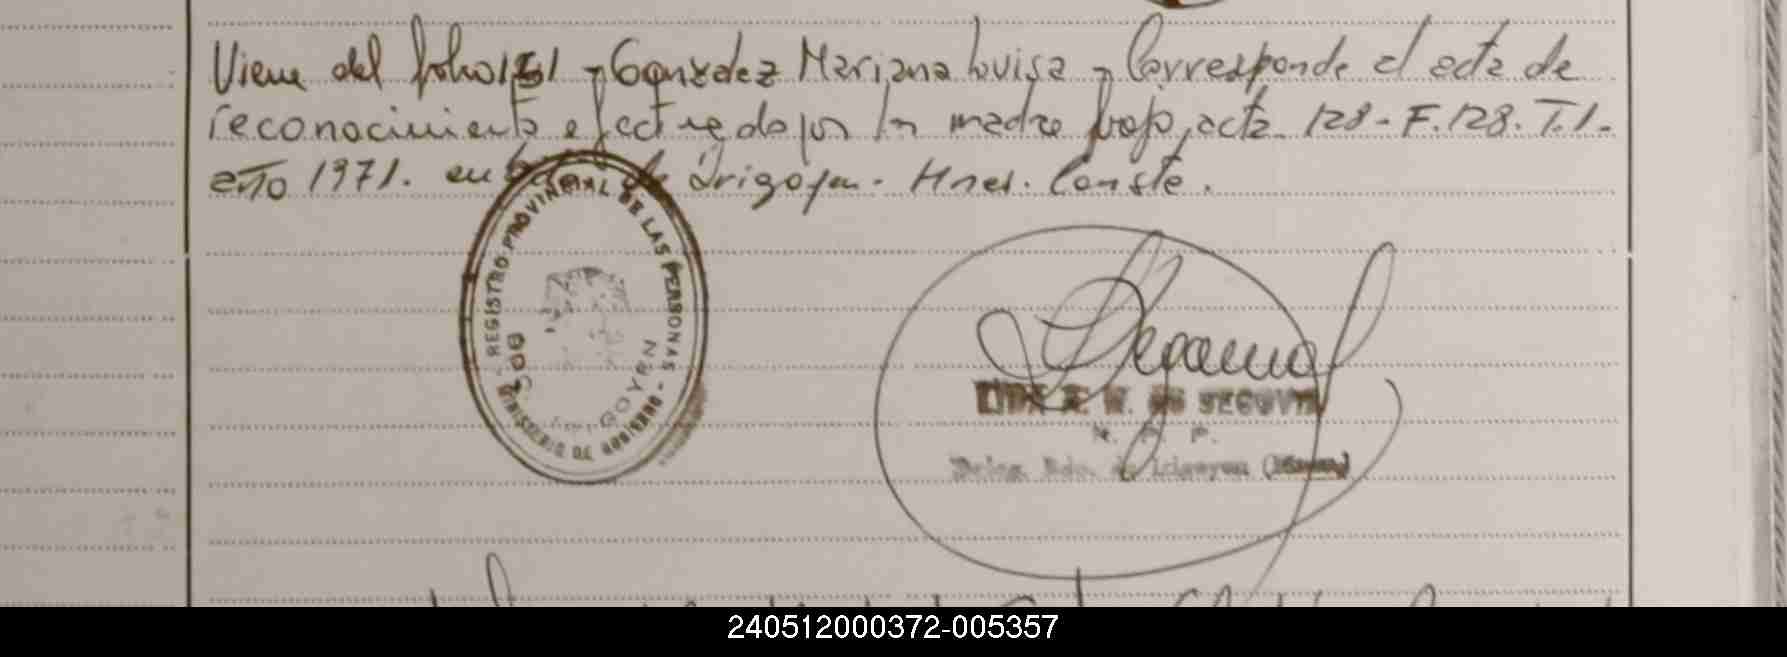 Viene del folio 151 - González Mariana Luisa - Corresponde el acta de
reconocimiento efectuado por la madre bajo acta 128 - F. 128. T. 1.
año 1971. en de Irigoyen - Mnes. Conste.
REGISTRO PROVINCIAL DE LAS PERSONAS
MINISTERIO DE GOBIERNO
DE SEGOVIA
Deleg. Bdo. de Irigoyen (Mnes)
240512000372-005357